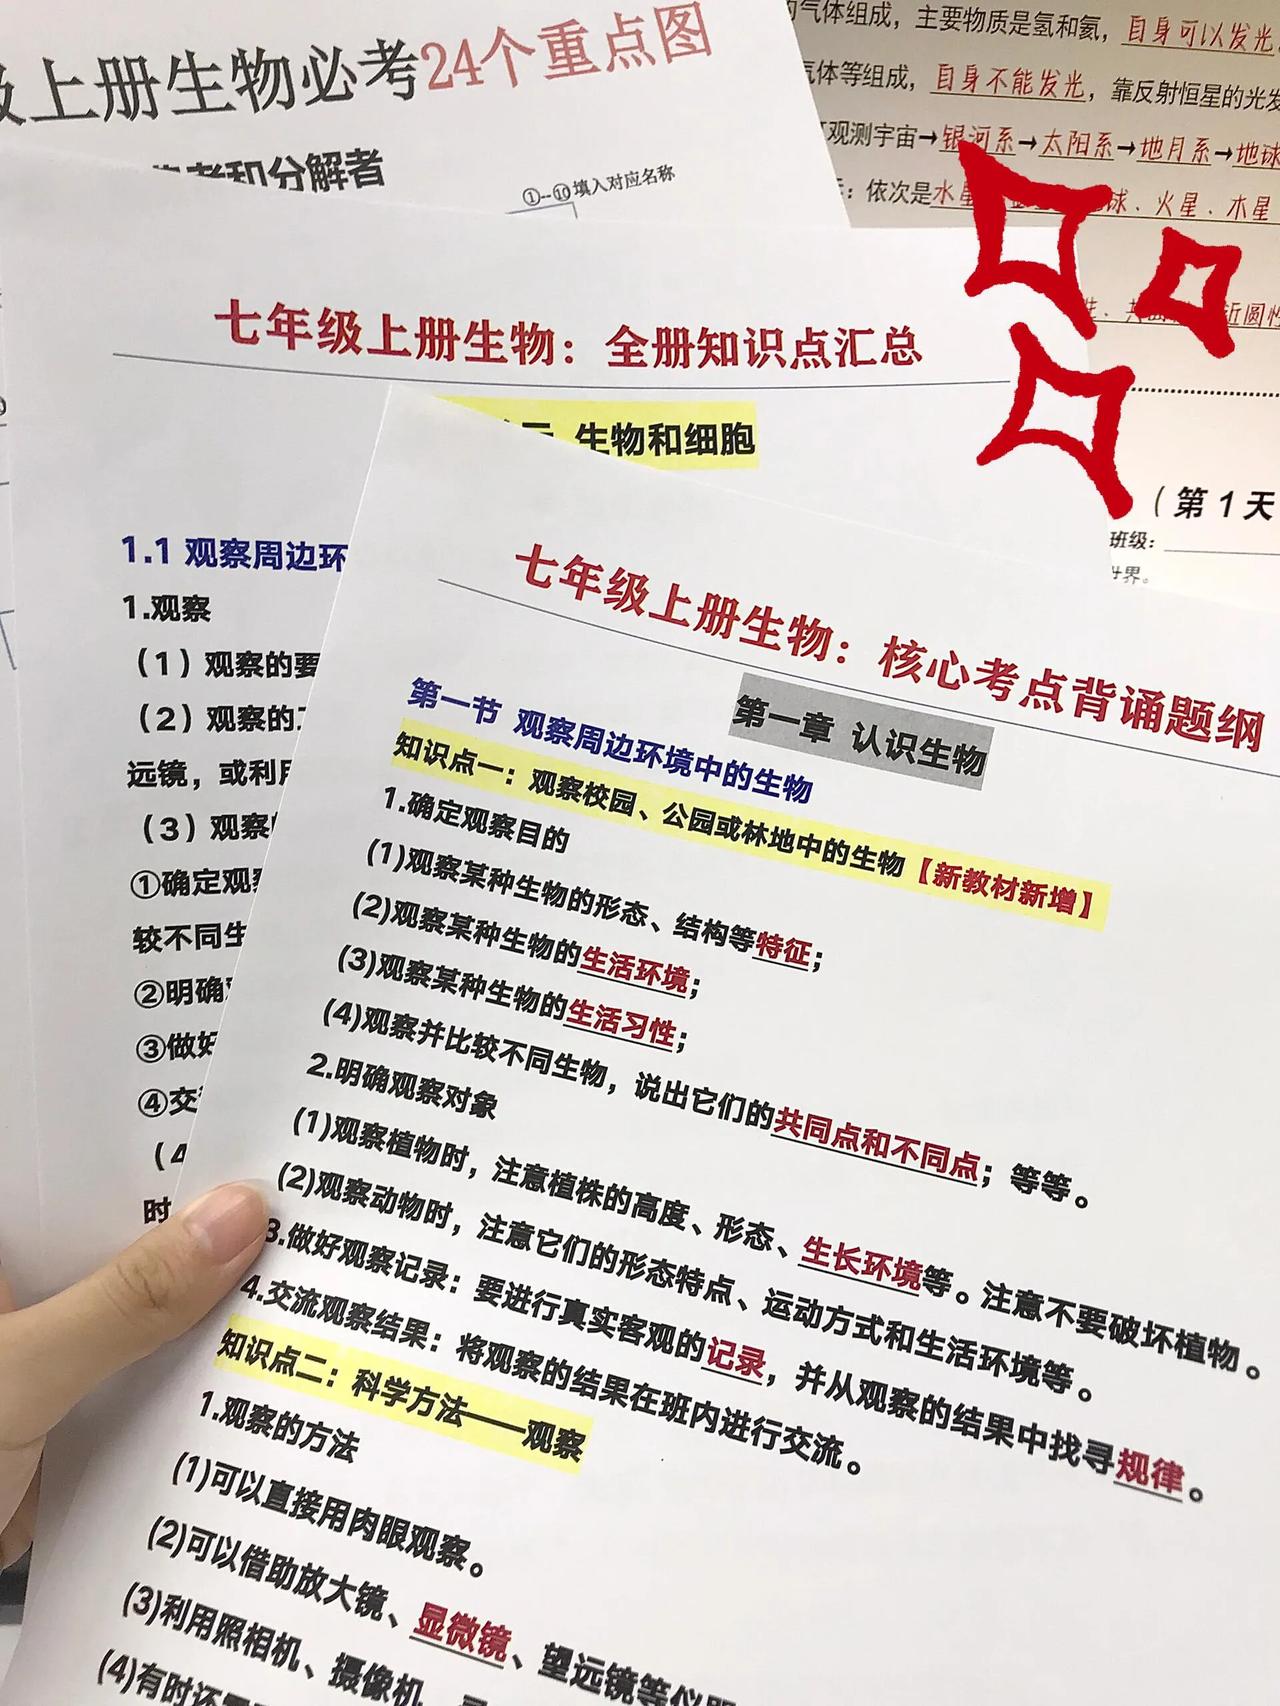 级上册生物必考24个重点图
者和分解者
①--⑩填入对应名称
气体组成，主要物质是氢和氦，自身可以发光
气体等组成，自身不能发光，靠反射恒星的光发
观测宇宙→银河系→太阳系→地月系→地球
：依次是水星
球、火星、木星
近圆性
（第1天
班级：
界。
七年级上册生物：全册知识点汇总
生物和细胞
1.1 观察周边环
1.观察
（1）观察的要
（2）观察的
远镜，或利用
（3）观察
①确定观察
较不同生
②明确
③做好
④交
（4
时
七年级上册生物：核心考点背诵题纲
第一章 认识生物
第一节 观察周边环境中的生物
知识点一：观察校园、公园或林地中的生物【新教材新增】
1.确定观察目的
(1)观察某种生物的形态、结构等特征；
(2)观察某种生物的生活环境；
(3)观察某种生物的生活习性；
(4)观察并比较不同生物，说出它们的共同点和不同点；等等。
2.明确观察对象
(1)观察植物时，注意植株的高度、形态、生长环境等。注意不要破坏植物。
(2)观察动物时，注意它们的形态特点、运动方式和生活环境等。
3.做好观察记录：要进行真实客观的记录，并从观察的结果中找寻规律。
4.交流观察结果：将观察的结果在班内进行交流。
知识点二：科学方法——观察
1.观察的方法
(1)可以直接用肉眼观察。
(2)可以借助放大镜、显微镜、望远镜等仪器
(3)利用照相机、摄像机、
(4)有时还